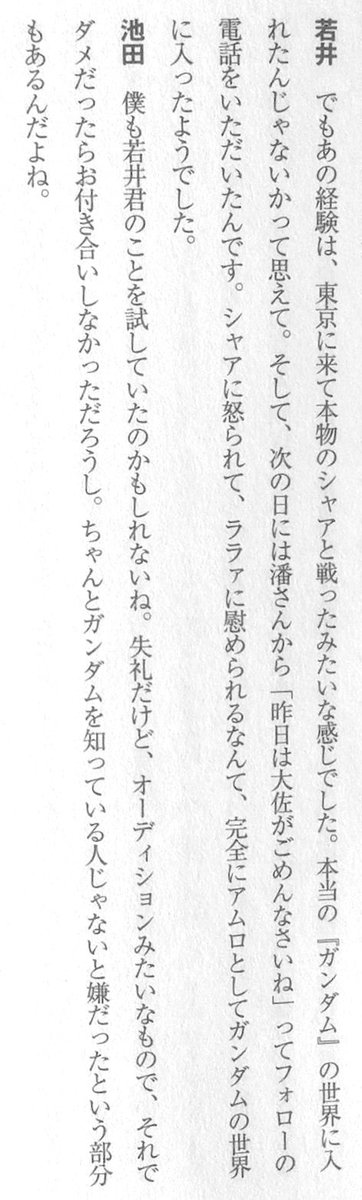 若井　でもあの経験は、東京に来て本物のシャアと戦ったみたいな感じでした。本当の『ガンダム』の世界に入
れたんじゃないかって思えて。そして、次の日には潘さんから「昨日は大佐がごめんなさいね」ってフォローの
電話をいただいたんです。シャアに怒られて、ララァに慰められるなんて、完全にアムロとしてガンダムの世界
に入ったようでした。
池田　僕も若井君のことを試していたのかもしれないね。失礼だけど、オーディションみたいなもので、それで
ダメだったらお付き合いしなかっただろうし。ちゃんとガンダムを知っている人じゃないと嫌だったという部分
もあるんだよね。